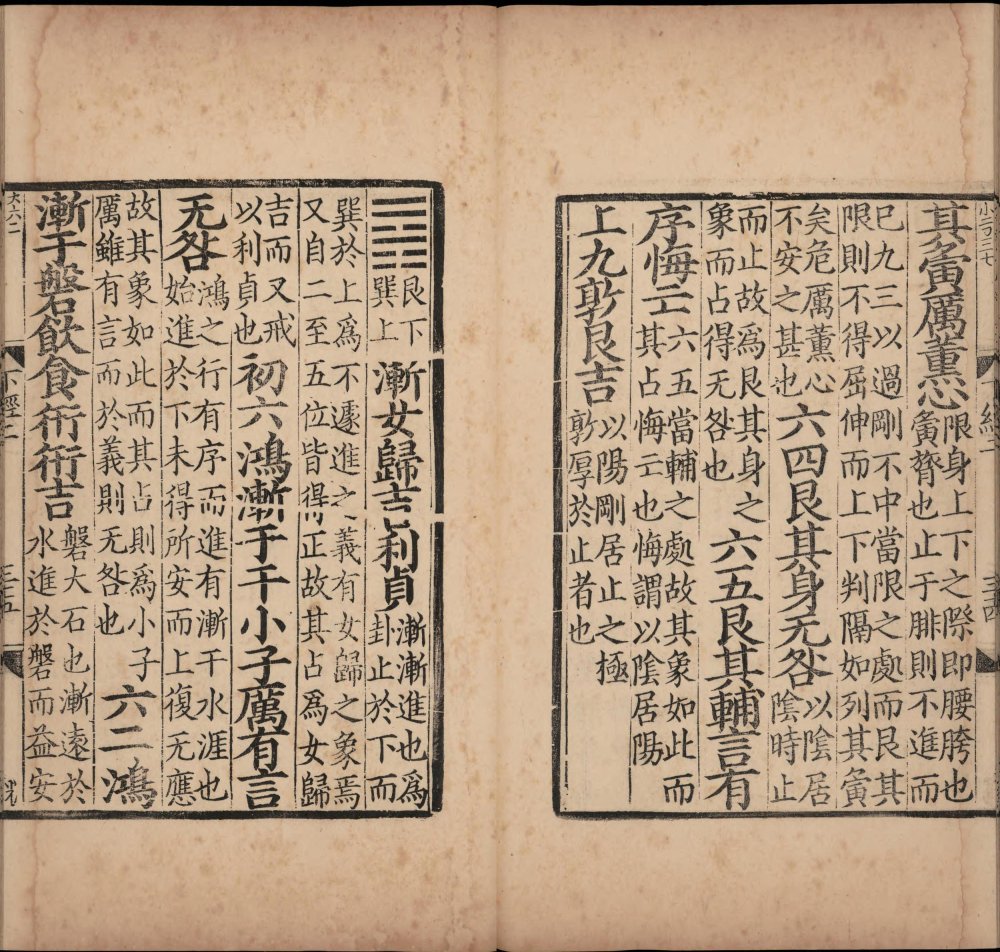 其夤厲薰心
限身上下之際即腰胯也
夤膂也止于腓則不進而
已九三以過剛不中當限之處而艮其
限則不得屈伸而上下判隔如列其夤
矣危厲薰心
不安之甚也
六四艮其身无咎
以陰居
陰時止
而止故爲艮其身之
象而占得无咎也
六五艮其輔言有
序悔亡
六五當輔之處故其象如此而
其占悔亡也悔謂以陰居陽
上九敦艮吉
以陽剛居止之極
敦厚於止者也
下經二
三十四
艮下
巽上
漸女歸吉利貞
漸漸進也爲
卦止於下而
巽於上爲不遽進之義有女歸之象焉
又自二至五位皆得正故其占爲女歸
吉而又戒
以利貞也
初六鴻漸于干小子厲有言
无咎
鴻之行有序而進有漸干水涯也
始進於下未得所安而上復无應
故其象如此而其占則爲小子
厲雖有言而於義則无咎也
六二鴻
漸于磐飲食衎衎吉
磐大石也漸遠於
水進於磐而益安
大六二
下經二
三十五